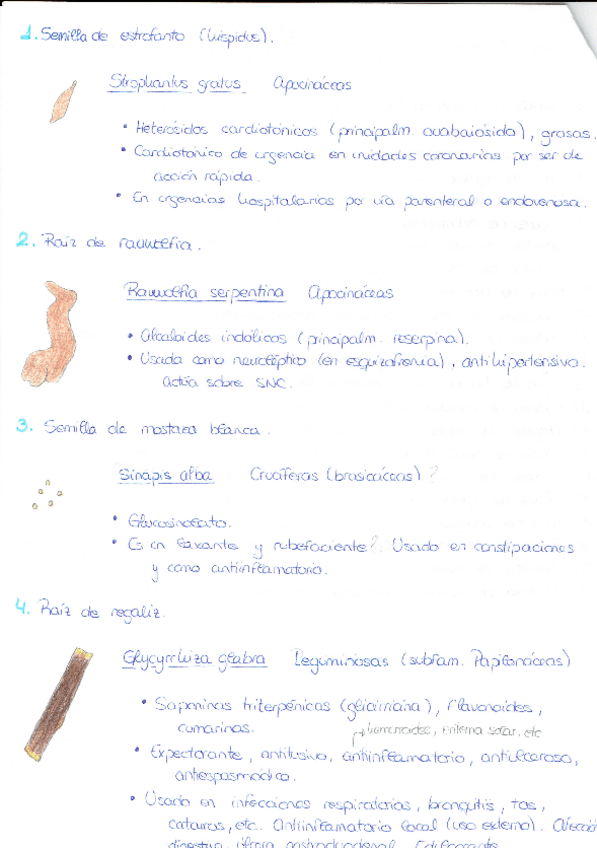 1. Semilla de estrofanto (hispidus).
Strophantus gratus Apocináceas
• Heterósidos cardiotónicos (principalm. ouabaiósido), grasas.
• Cardiotónico de urgencia en unidades coronarias por ser de
acción rápida.
• En urgencias hospitalarias por vía parenteral o endovenosa.
2. Raíz de rauwlfia.
Rauwolfia serpentina Apocináceas
• Alcaloides indólicos (principalm. reserpina).
• Usada como neuroléptico (en esquizofrenia), antihipertensivo.
actúa sobre SNC.
3. Semilla de mostaza blanca.
Sinapis alba Crucíferas (brasicáceas)?
• Glucosinolato.
• Es un laxante y rubefaciente?. Usado en constipaciones
y como antiinflamatorio.
4. Raíz de regaliz.
Glycyrrhiza glabra Leguminosas (subfam. Papilonáceas)
• Saponinas triterpénicas (glicirricina), flavonoides,
cumarinas.
hemorroides, eritema solar, etc
• Expectorante, antitusivo, antiinflamatorio, antiulceroso,
antiespasmódico.
• Usado en infecciones respiratorias, bronquitis, tos,
catarros, etc. Antiinflamatorio local (uso externo).
digestiva, úlcera gastroduodenal. Edulcorante